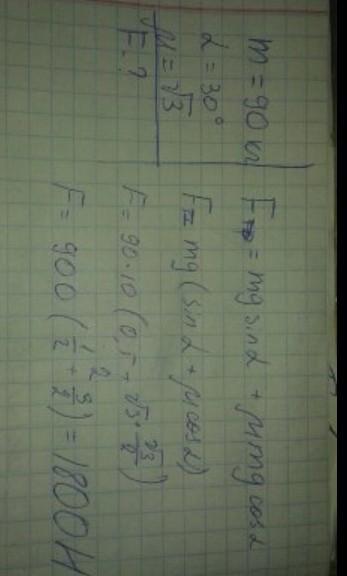 m = 90 кг
α = 30°
μ = √3
F - ?
F = mg sinα + μmg cosα
F = mg (sinα + μ cosα)
F = 90·10 (0,5 + √3·√3/2)
F = 900 (1/2 + 3/2) = 1800 Н